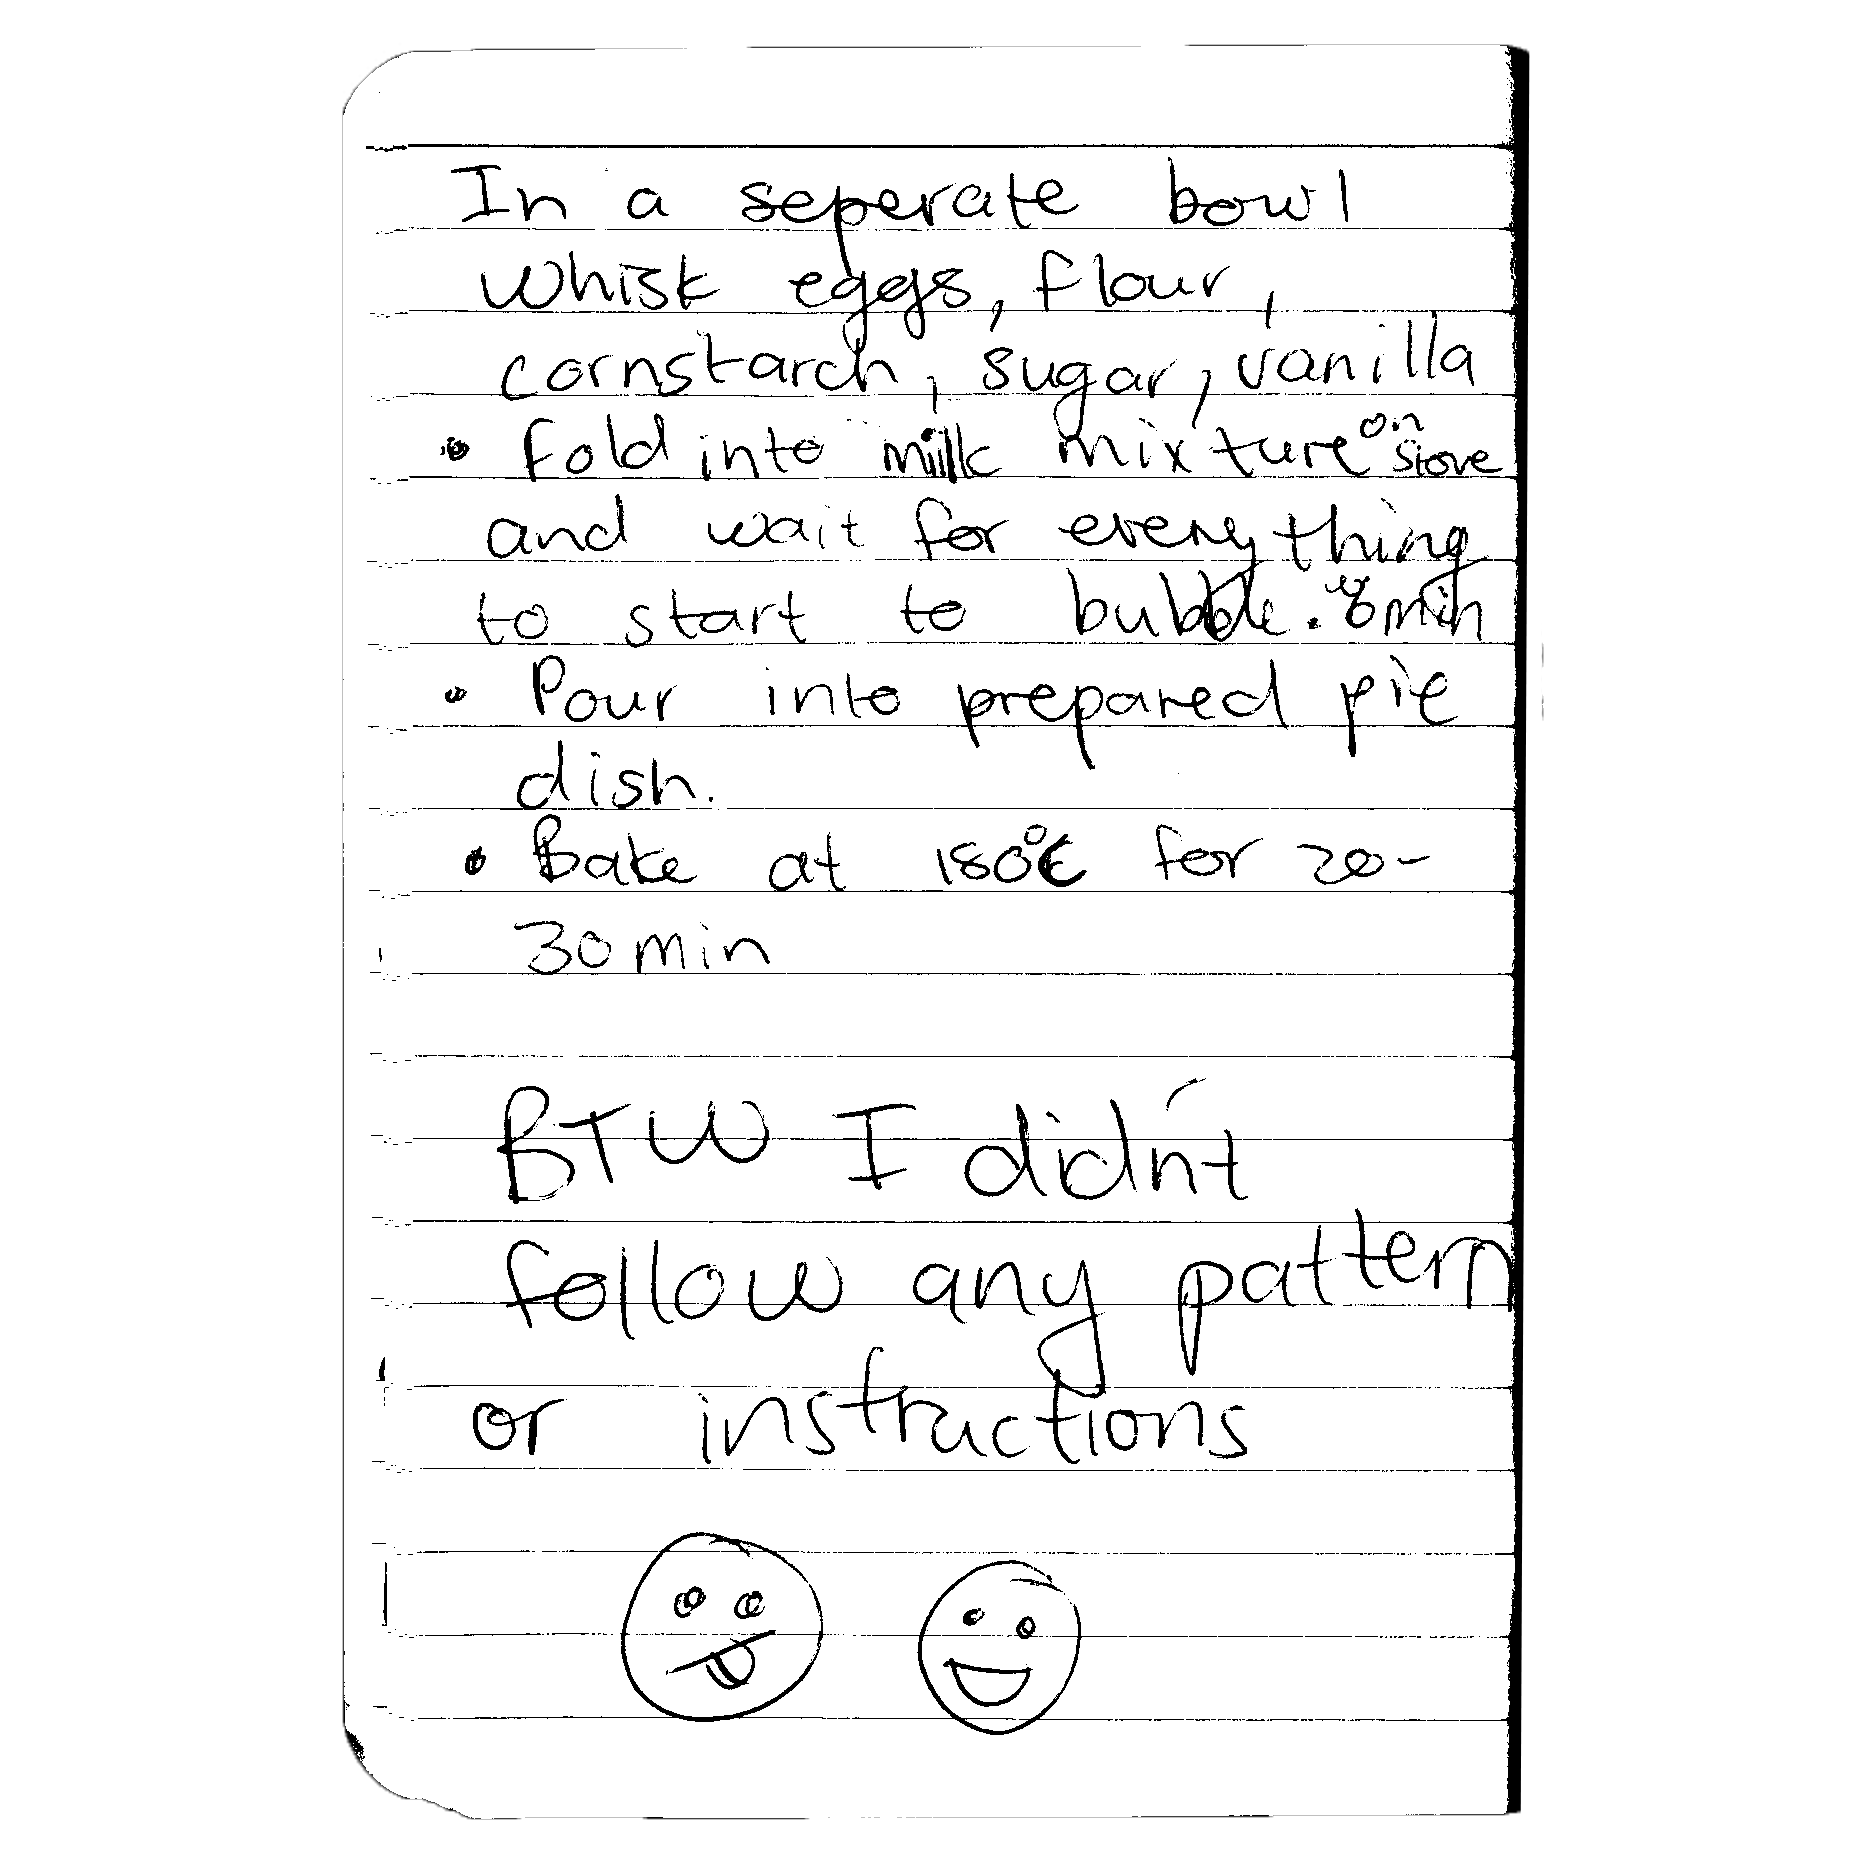 In a seperate bowl
whisk eggs, flour,
cornstarch, sugar, vanilla
• fold into milk mixture on stove
and wait for everything
to start to bubble. min
• Pour into prepared pie
dish.
• Bake at 180°C for 20-
30 min
BTW I didn't
follow any pattern
or instructions